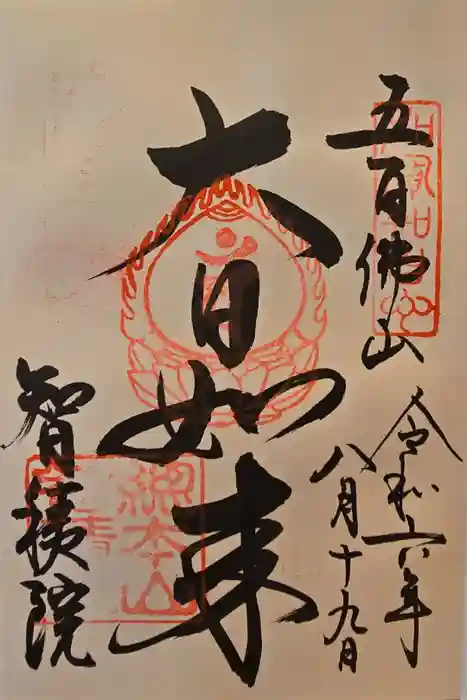 五百佛山
令和六年
八月十九日
大日如来
智積院
総本山